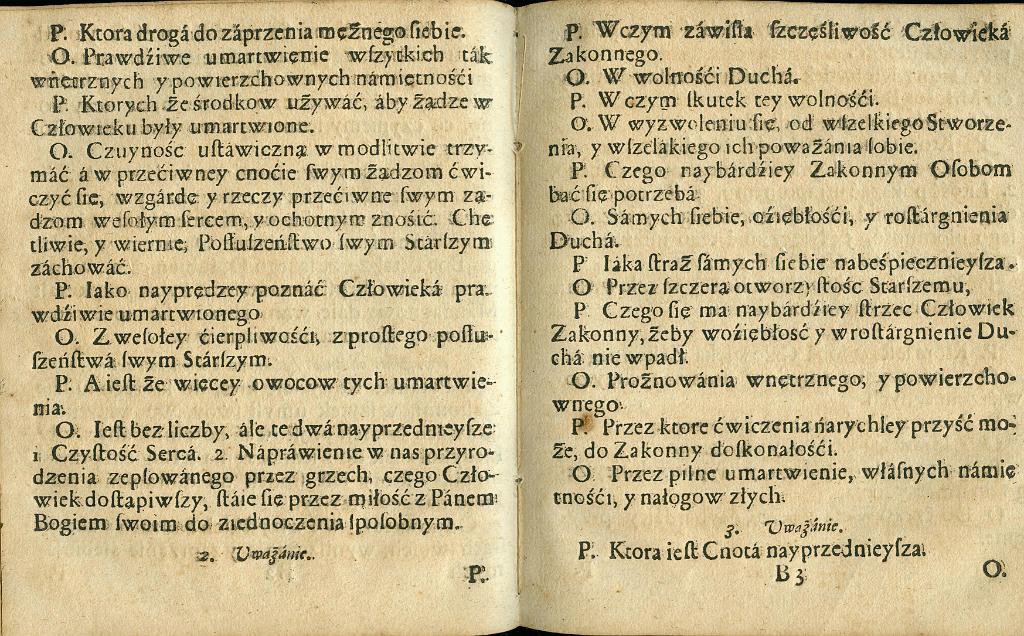 P. Ktora drogá do záprzenia mężnego ſiebie.
O. Prawdźiwe umartwienie wſzytkich ták
wnętrznych y powierzchownych námiętnośći
P. Ktorych że środkow używáć, áby żądze w
Człowieku były umartwione.
O. Czuyność uſtáwiczną w modlitwie trzy-
máć á w przećiwney cnoćie ſwym żądzom ćwi-
czyć ſię, wzgárdę y rzeczy przećiwne ſwym żą-
dzom weſołym ſercem, y ochotnym znośić. Chę
tliwie, y wiernie, Poſłuſzeńſtwo ſwym Stárſzym
záchowáć.
P. Iako nayprędzey poznáć Człowieká pra-
wdźiwie umartwionego
O. Z weſołey ćierpliwośći, z proſtego poſłu-
ſzeńſtwá ſwym Stárſzym.
P. A ieſt że więcey owocow tych umartwie-
nia.
O. Ieſt bez liczby, ále te dwá nayprzednieyſze
1 Czyſtość Sercá. 2. Nápráwienie w nas przyro-
dzenia zepſowánego przez grzech, czego Czło-
wiek doſtąpiwſzy, ſtáie ſię przez miłość z Pánem
Bogiem ſwoim do ziednoczenia ſpoſobnym.
2. Uważánie.
P.
P. W czym záwiſła ſzczęśliwość Człowieká
Zakonnego.
O. W wolnośći Duchá.
P. W czym ſkutek tey wolnośći.
O. W wyzwoleniu ſię, od wſzelkiego Stworze-
nia, y wſzelákiego ich poważánia ſobie.
P. Czego naybárdźiey Zakonnym Oſobom
bać ſię potrzebá.
O. Sámych ſiebie, oźiębłośći, y roſtárgnienia
Duchá.
P Iáka ſtraż ſámych ſiebie nabeśpiecznieyſza.
O Przez ſzczera otworzyſtość Starſzemu,
P Czego ſię ma naybárdźiey ſtrzec Człowiek
Zakonny, żeby w oźiębłosć y w roſtárgnienie Du-
chá nie wpadł.
O. Prożnowánia wnętrznego, y powierzcho-
wnego.
P. Przez ktore ćwiczenia narychley przyść mo-
że, do Zakonny doſkonałośći.
O Przez pilne umartwienie, właſnych námię
tnośći, y nałogow złych.
3. Uważánie.
P. Ktora ieſt Cnotá nayprzednieyſza.
B 3
O.